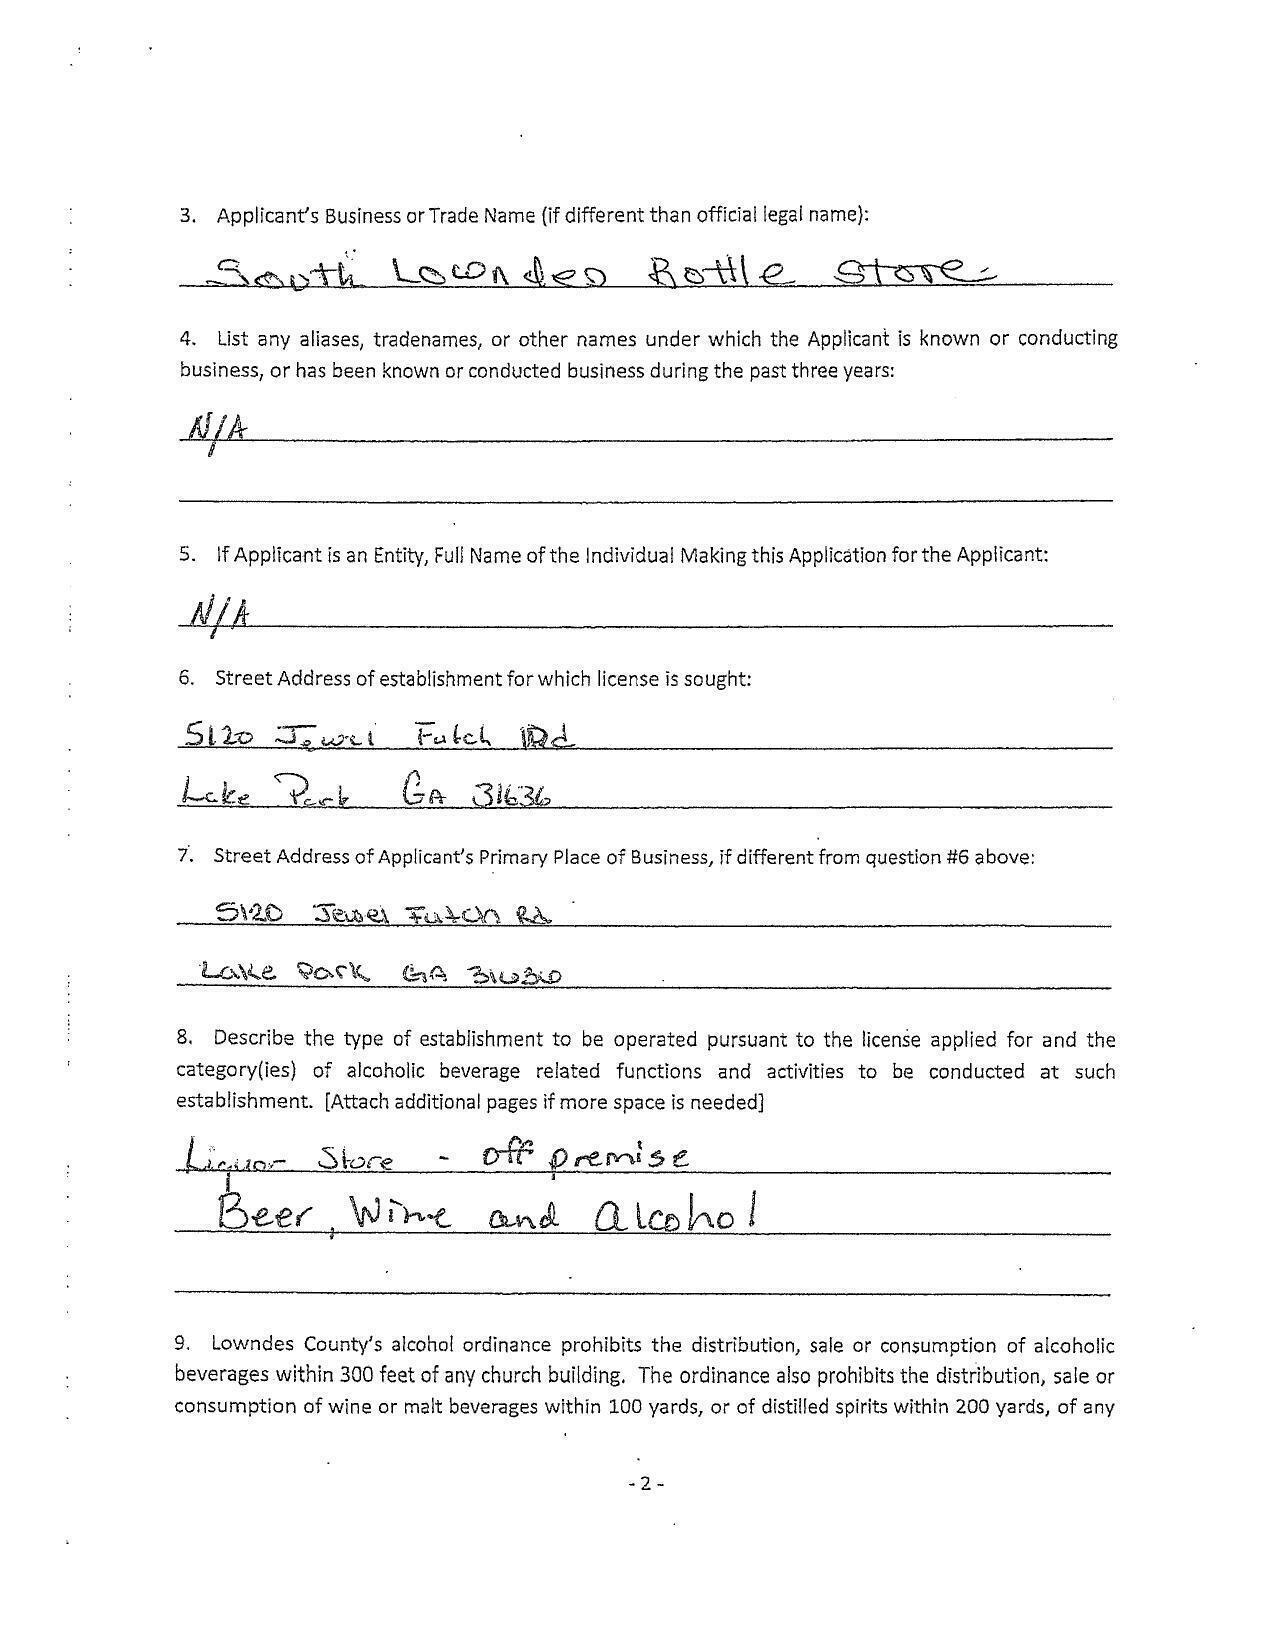 3. Applicant's Business or Trade Name (if different than official legal name):
South Lowndes Bottle Store
4. List any aliases, tradenames, or other names under which the Applicant is known or conducting
business, or has been known or conducted business during the past three years:
N/A
5. If Applicant is an Entity, Full Name of the Individual Making this Application for the Applicant:
N/A
6. Street Address of establishment for which license is sought:
5120 Jewel Futch Rd
Lake Park GA 31636
7. Street Address of Applicant's Primary Place of Business, if different from question #6 above:
5120 Jewel Futch Rd
Lake Park GA 31636
8. Describe the type of establishment to be operated pursuant to the license applied for and the
category(ies) of alcoholic beverage related functions and activities to be conducted at such
establishment. [Attach additional pages if more space is needed]
Liquor Store - off premise
Beer, Wine and Alcohol
9. Lowndes County's alcohol ordinance prohibits the distribution, sale or consumption of alcoholic
beverages within 300 feet of any church building. The ordinance also prohibits the distribution, sale or
consumption of wine or malt beverages within 100 yards, or of distilled spirits within 200 yards, of any
- 2 -